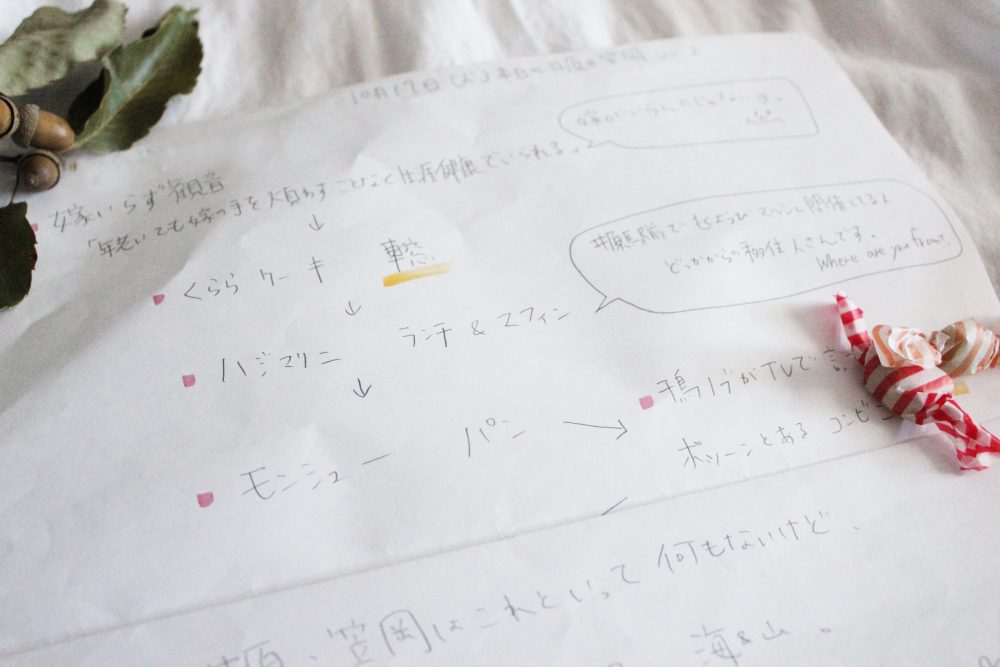 10月17日(火)本日の井原&笠岡コース
嫁がいらんのじゃないよ。
嫁いらず観音
「年老いても嫁の手を煩わすことなく生涯健康でいられる」
↓
くらら ケーキ 車窓
↓
井原駅前で もくようび マルシェ開催してるよ
どっかからの移住人さんです。
Where are you from?
ハジマリニ ランチ & マフィン
↓
モンシュー パン →
千鳥ノブがTVで言
ポツーンとある コンビニ
井原、笠岡はこれといって何もないけど、
海&山。